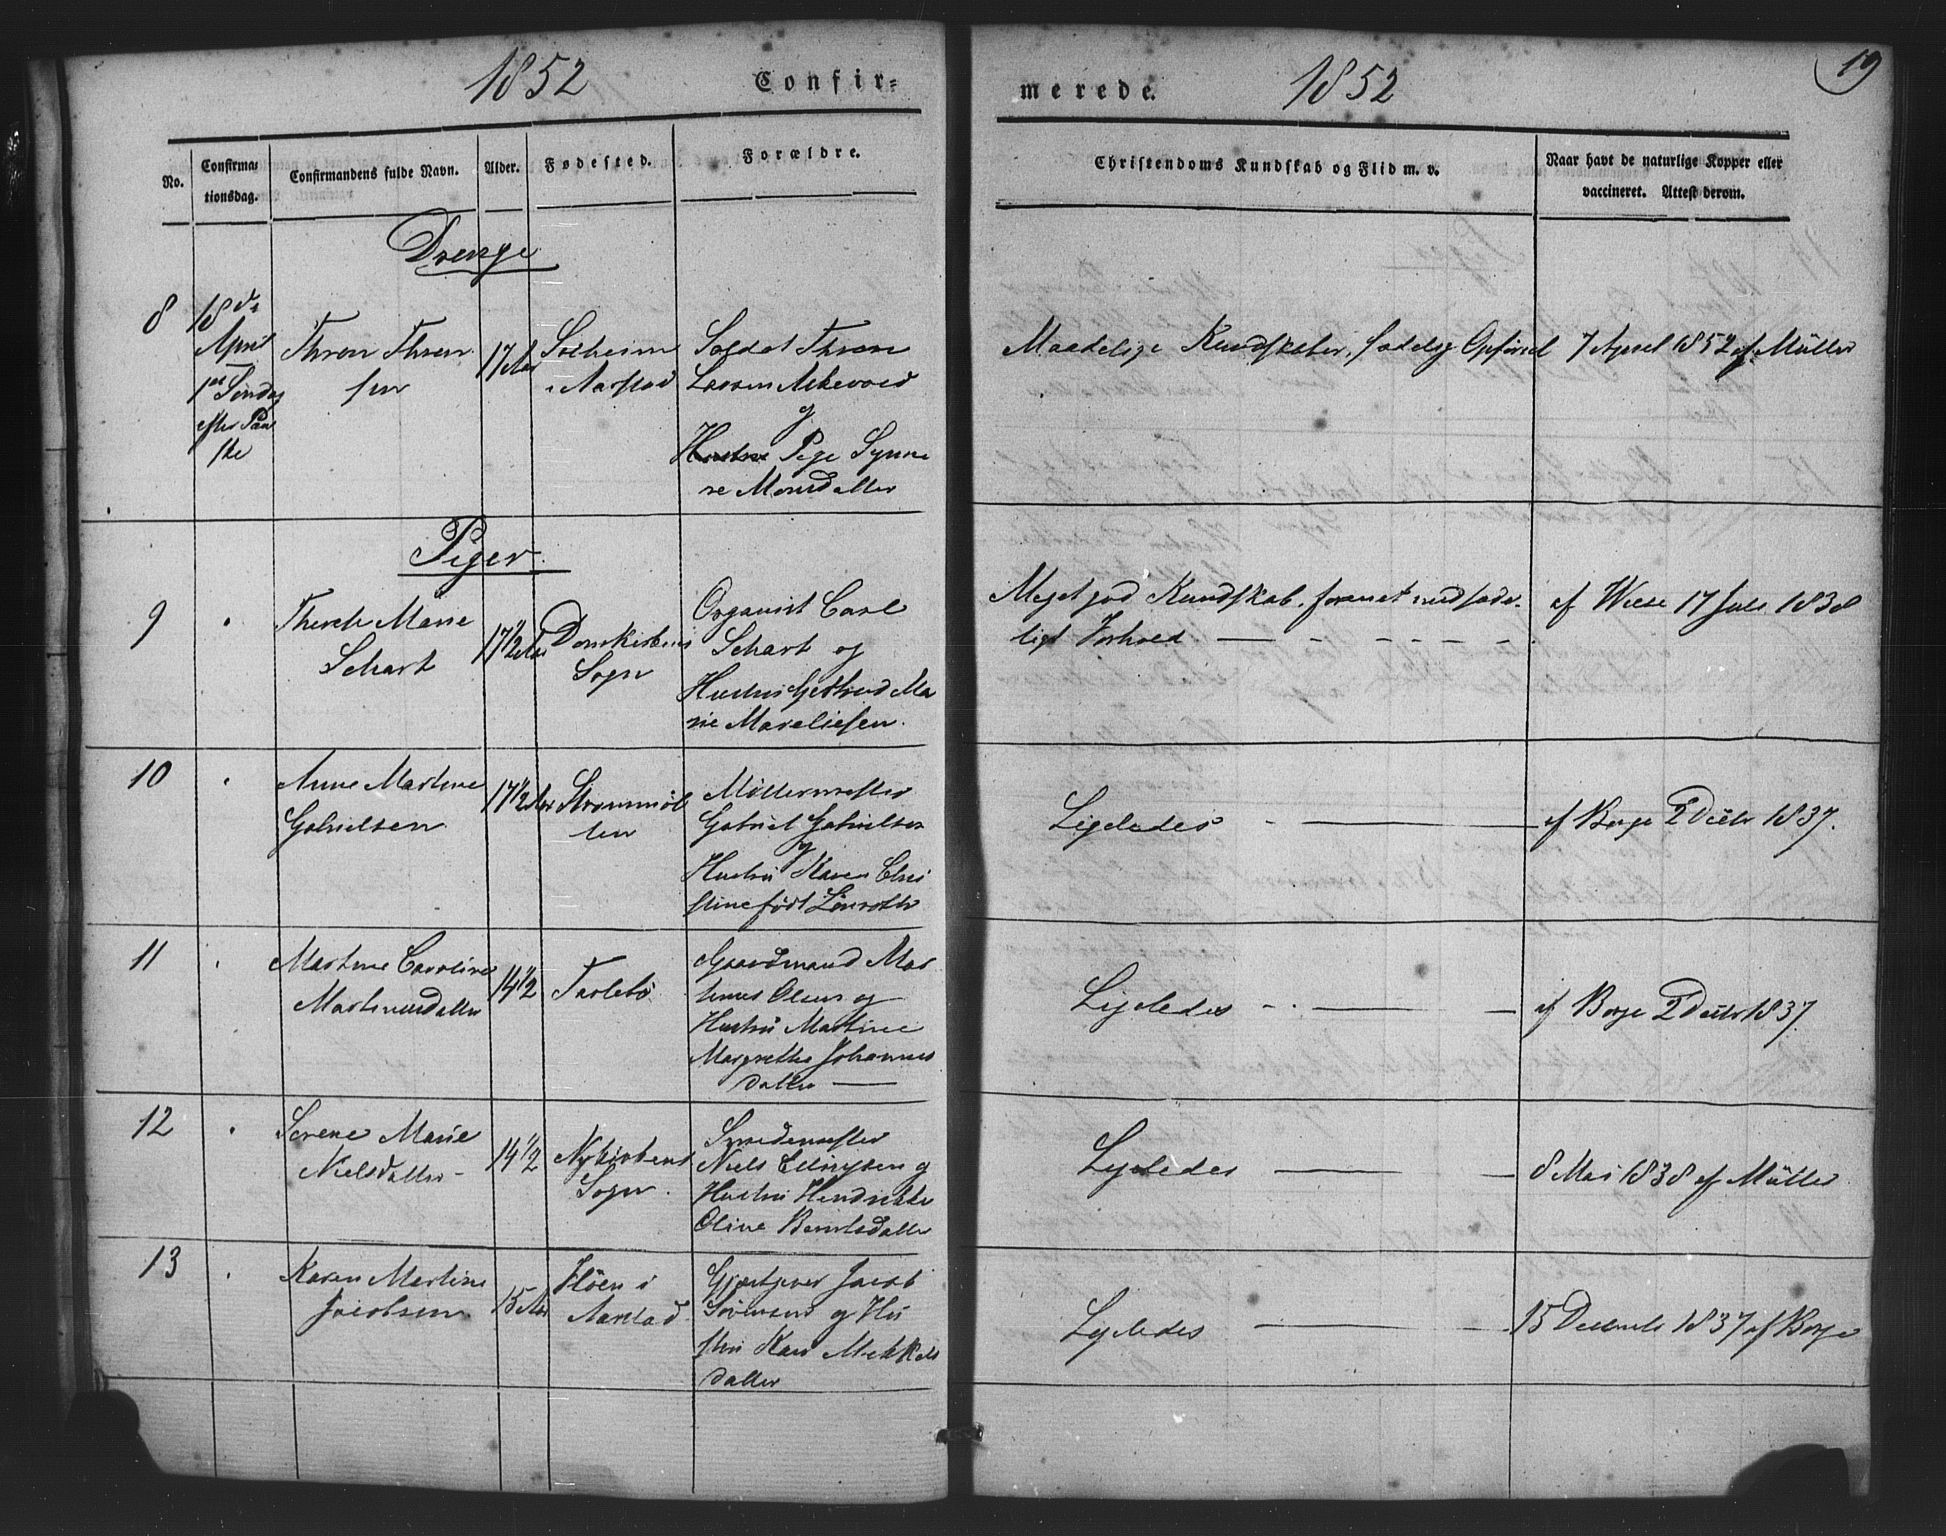 1852 Confir=
merede. 1852 19
No. Confirma= tionsdag. Confirmandens fulde Navn. Alder. Fødested. Forældre.
Christendoms Kundskab og Flid m. v. Naar havt de naturlige Kopper eller vaccineret. Attest derom.
Drenge
8
18de
April
1ste Søndag
efter Paa
ske
Thron Thron
sen
17 Aar
Solheim
i Aarstad
Soldat Thron
Larsen
og
Hustru Pige Synne
ve Monsdatter
Maadelige Kundskaber, sædelig Opførsel
7 April 1852 af Müller
Piger.
9
Marie
Schart
17 1/2 Aar
Domkirkens
Sogn
Organist Carl
Schart og
Hustru Gertrud Ma
rie
Meget god Kundskab, forenet med sæde-
ligt Forhold
af Wiese 17 Juli 1838
10
Anne Martine
Gabrielsen
17 1/2 Aar
Strømmøl
len
Møllermester
Gabriel Gabrielsen
og
Hustru Karen Chri
stine født
Ligeledes
af Borge 2 Decbr 1837.
11
Martine Caroline
Martinusdatter
14 1/2
Tarlebø
Gaardmand Mar
tinus Olsen og
Hustru Martine
Margrethe Johannes
datter
Ligeledes
af Borge 2 Decbr 1837.
12
Serene Marie
Nielsdatter
14 1/2
Nykirkens
Sogn.
Smedemester
Niels Ellingsen og
Hustru Hendrikke
Oline Berntsdatter
Ligeledes
8 Mai 1838 af Müller
13
Karen Martine
Jacobsen
15 Aar
Fløen i
Aarstad
Gjæstgever Jacob
Sørensen og Hu
stru Kari Mikkels
datter
Ligeledes
15 Decembr 1837 af Borge